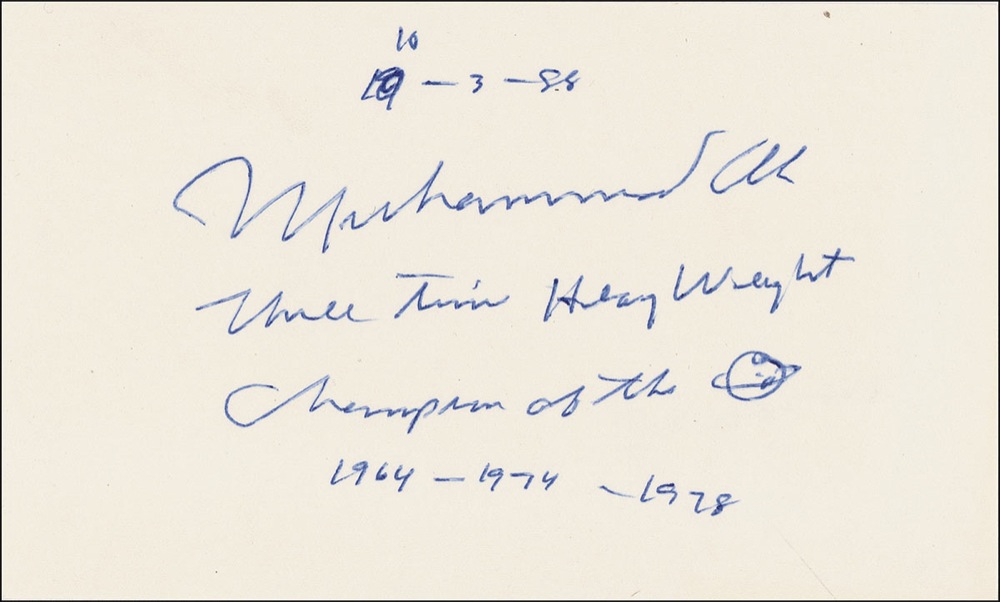 10
19 - 3 - 88
Muhammad Ali
Three Time Heavy Weight
Champion of the
1964 - 1974 - 1978